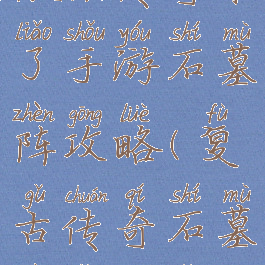 liǎo shǒu yóu shí mù
了手游石墓
zhèn gōng lüè ( fù
阵攻略(复
gǔ chuán qí shí mù
古传奇石墓